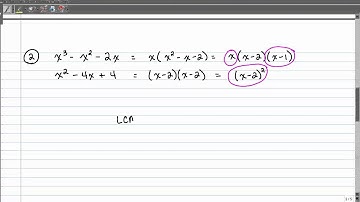 ② x³ - x² - 2x = x(x² - x - 2) = x(x-2)(x-1)
x² - 4x + 4 = (x-2)(x-2) = (x-2)²
LCM